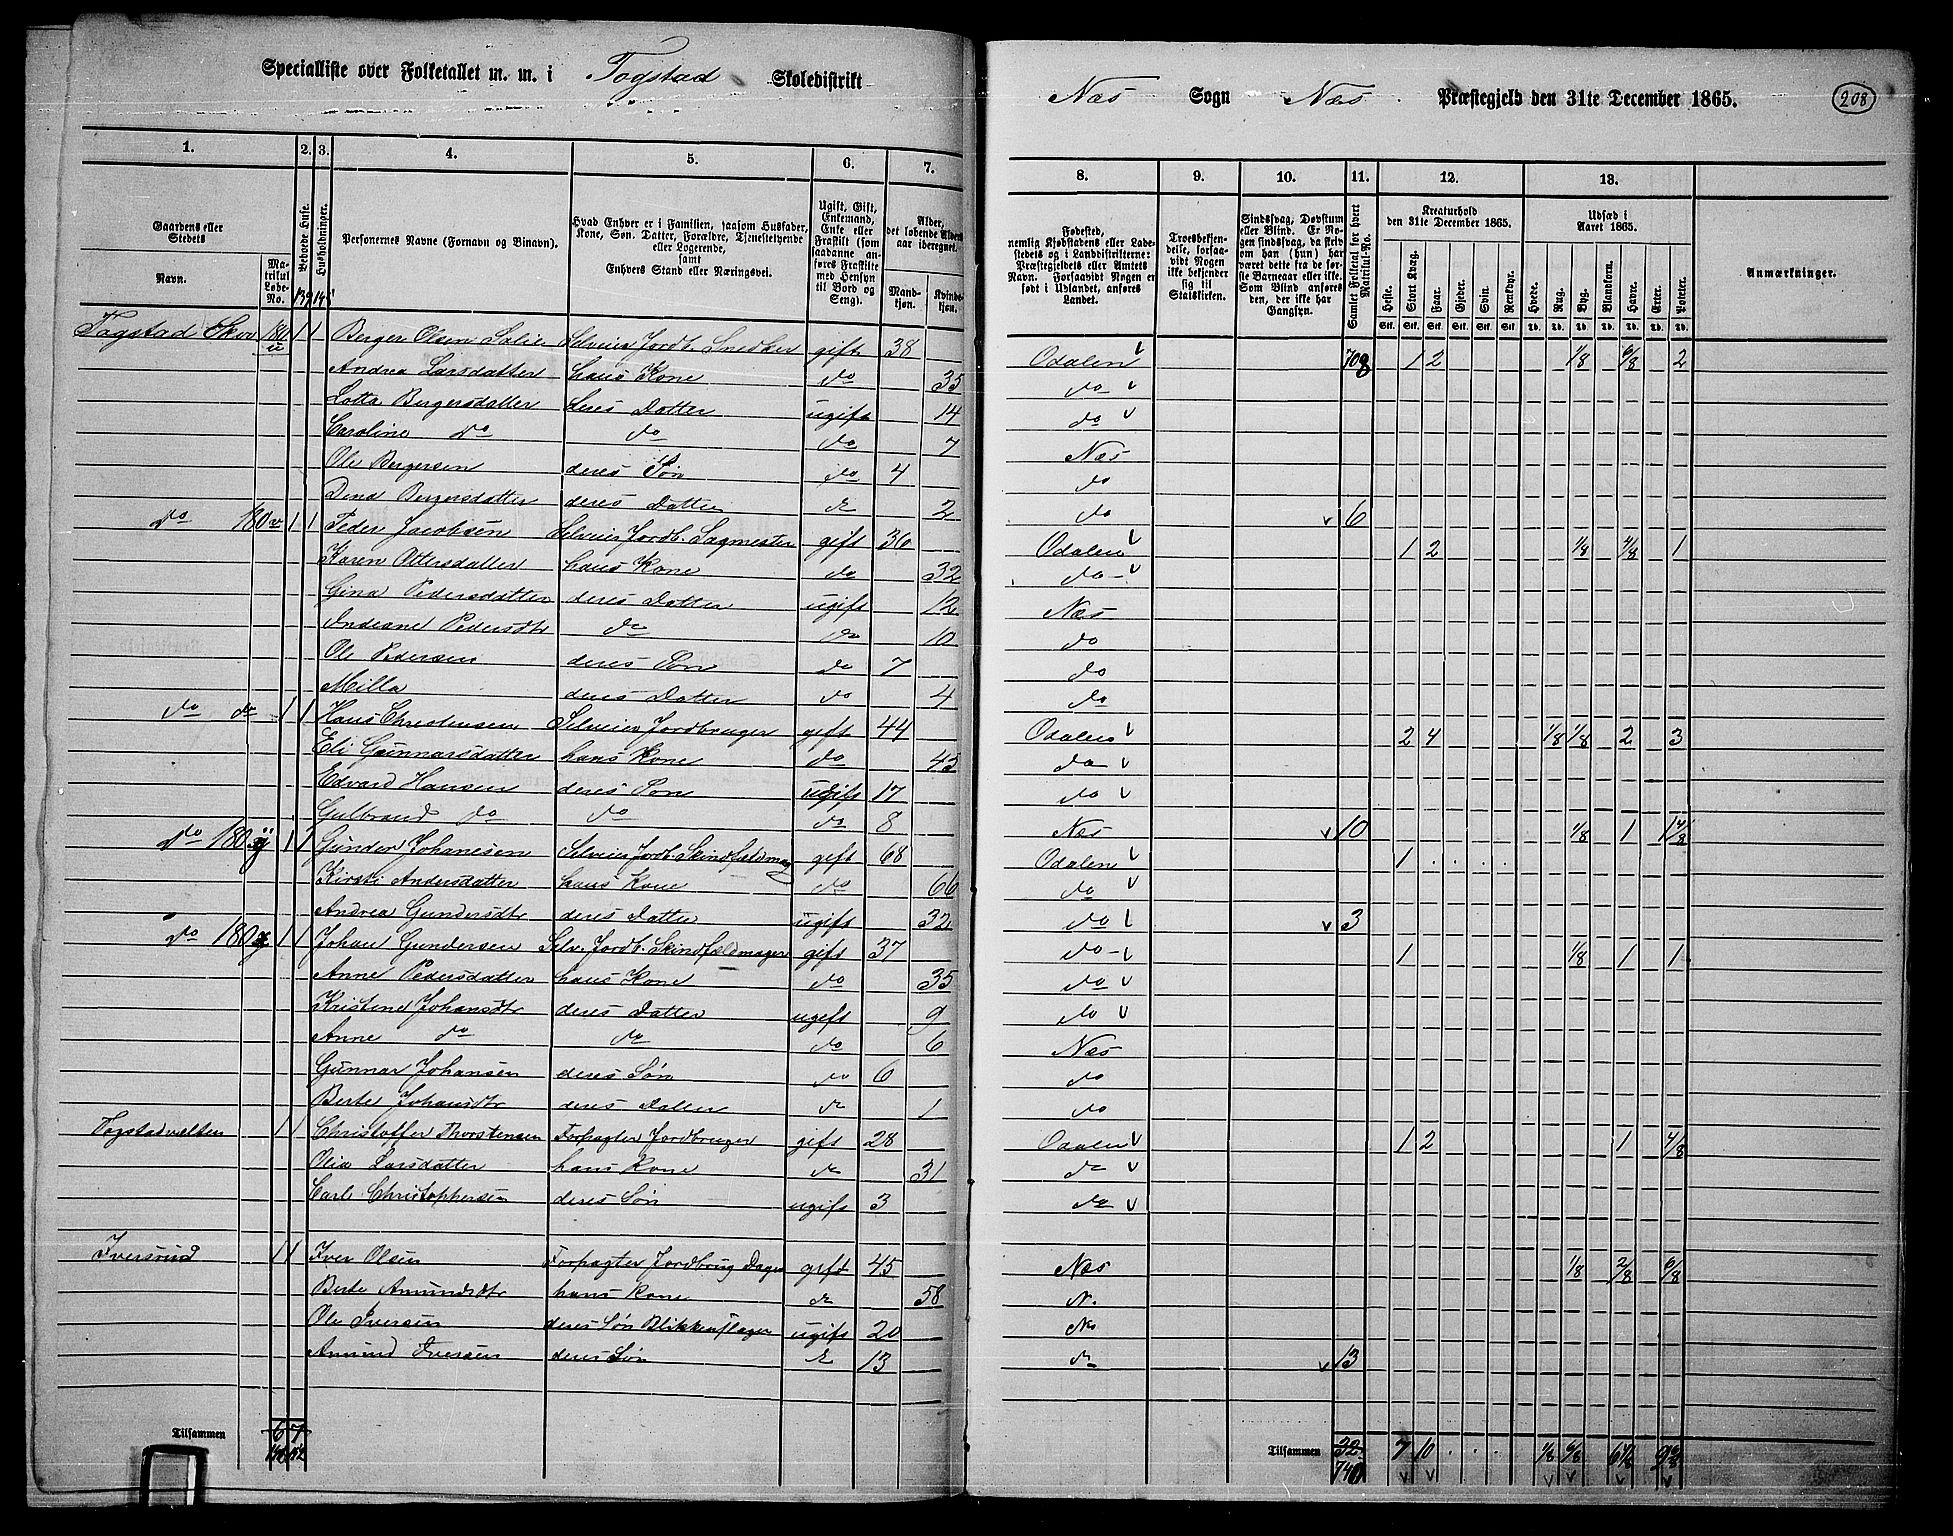 Specialliste over Folketallet m. m. i Togstad Skoledistrikt
Næs Sogn Næs Præstegjeld den 31te December 1865.
208
1. 2. 3. 4. 5. 6. 7.
8. 9. 10. 11. 12. 13.
Gaardens eller Stedets
Navn.
Matrikul Løbe-No.
Beboede Huse.
Husholdninger.
Personernes Navne (Fornavn og Binavn).
Hvad Enhver er i Familien, saasom Husfader, Kone, Søn, Datter, Forældre, Tjenestetyende eller Logerende, samt Enhvers Stand eller Næringsvei.
Ugift, Gift, Enkemand, Enke eller Fraskilt (som saadanne anføres Fraskilte med Hensyn til Bord og Seng).
Alder, det løbende Aldersaar iberegnet.
Mandkjøn. Kvindekjøn.
Fødested, nemlig Kjøbstadens eller Ladestedets eller i Landdistrikterne: Præstegjeldets eller Amtets Navn. Forsaavidt Nogen er født i Udlandet, anføres Landet.
Troesbekjendelse, forsaavidt Nogen ikke bekjender sig til Statskirken.
Sindssvag, Døvstum eller Blind. Er Nogen sindssvag, da skriv om han (hun) har været dette fra de første Barneaar eller ikke. Som Blind anføres den, der ikke har Gangsyn.
Samlet Folketal for hvert Matrikul-No.
Kreaturhold den 31te December 1865.
Heste. Stort Kvæg. Faar. Gjeder. Svin. Rensdyr.
Udsæd i Aaret 1865.
Hvede. Rug. Byg. Blandkorn. Havre. Erter. Poteter.
Anmærkninger.
Togstad Skov 180 u 1 1 Berger Olsen Selveier Jordb. Snedker gift 38 Odalen 708 1 2 1/8 6/8 2
Andrea Larsdatter hans Kone do 35 do
Lotta Bergersdatter deres Datter ugift 14 do
Caroline do do do 7 Næs
Ole Bergersen deres Søn do 4 do
Dina Bergersdatter deres Datter do 2 do 6
do 180 v 1 1 Peder Jacobsen Selveier Jordb. Sagmester gift 36 Odalen 1 2 1/8 4/8 1
Karen Ottersdatter hans Kone do 32 do
Gina Pedersdatter deres Datter ugift 12 Næs
Indiane Pedersdtr do do 10 do
Ole Pedersen deres Søn do 7 do
Milla deres Datter do 4 do
do do 1 1 Hans Christensen Selveier Jordbruger gift 44 Odalen 2 4 1/8 1/8 2 3
Eli Gunnarsdatter hans Kone do 45 do
Edvard Hansen deres Søn ugift 17 do
Gulbrand do do do 8 Næs 10 1/8 1 1 4/8
do 180 1 1 Gunder Johanesen Selveier Jordb. Skindfældmag gift 68 Odalen 1
Kirsti Andersdatter hans Kone do 66 do
Andrea Gundersdtr deres Datter ugift 32 do 3
do 180 1 1 Johan Gundersen Selv. Jordb. Skindfældmager gift 37 do 1 1/8 1 1
Anne Pedersdatter hans Kone do 35 do
Kristine Johansdtr deres Datter ugift 9 do
Anne do do do 6 Næs
Gunnar Johansen deres Søn do 6 do
Berte Johansdtr deres Datter do 1 do
Togstadvælten 1 1 Christoffer Thorstensen Forpagter Jordbruger gift 28 Odalen 1 2 1 4/8
Olia Larsdatter hans Kone do 31 do
Carl Christophersen deres Søn ugift 3 do
Iversrud 1 1 Iver Olsen Forpagter Jordbrug gift 45 Næs 1/8 2/8 6/8
Berte Amundsdtr hans Kone do 58
Ole Iversen deres Søn Blikkenslager ugift 20
Amund Iversen deres Søn do 13 do 13
Tilsammen 6 7
Tilsammen 32 7 10
740